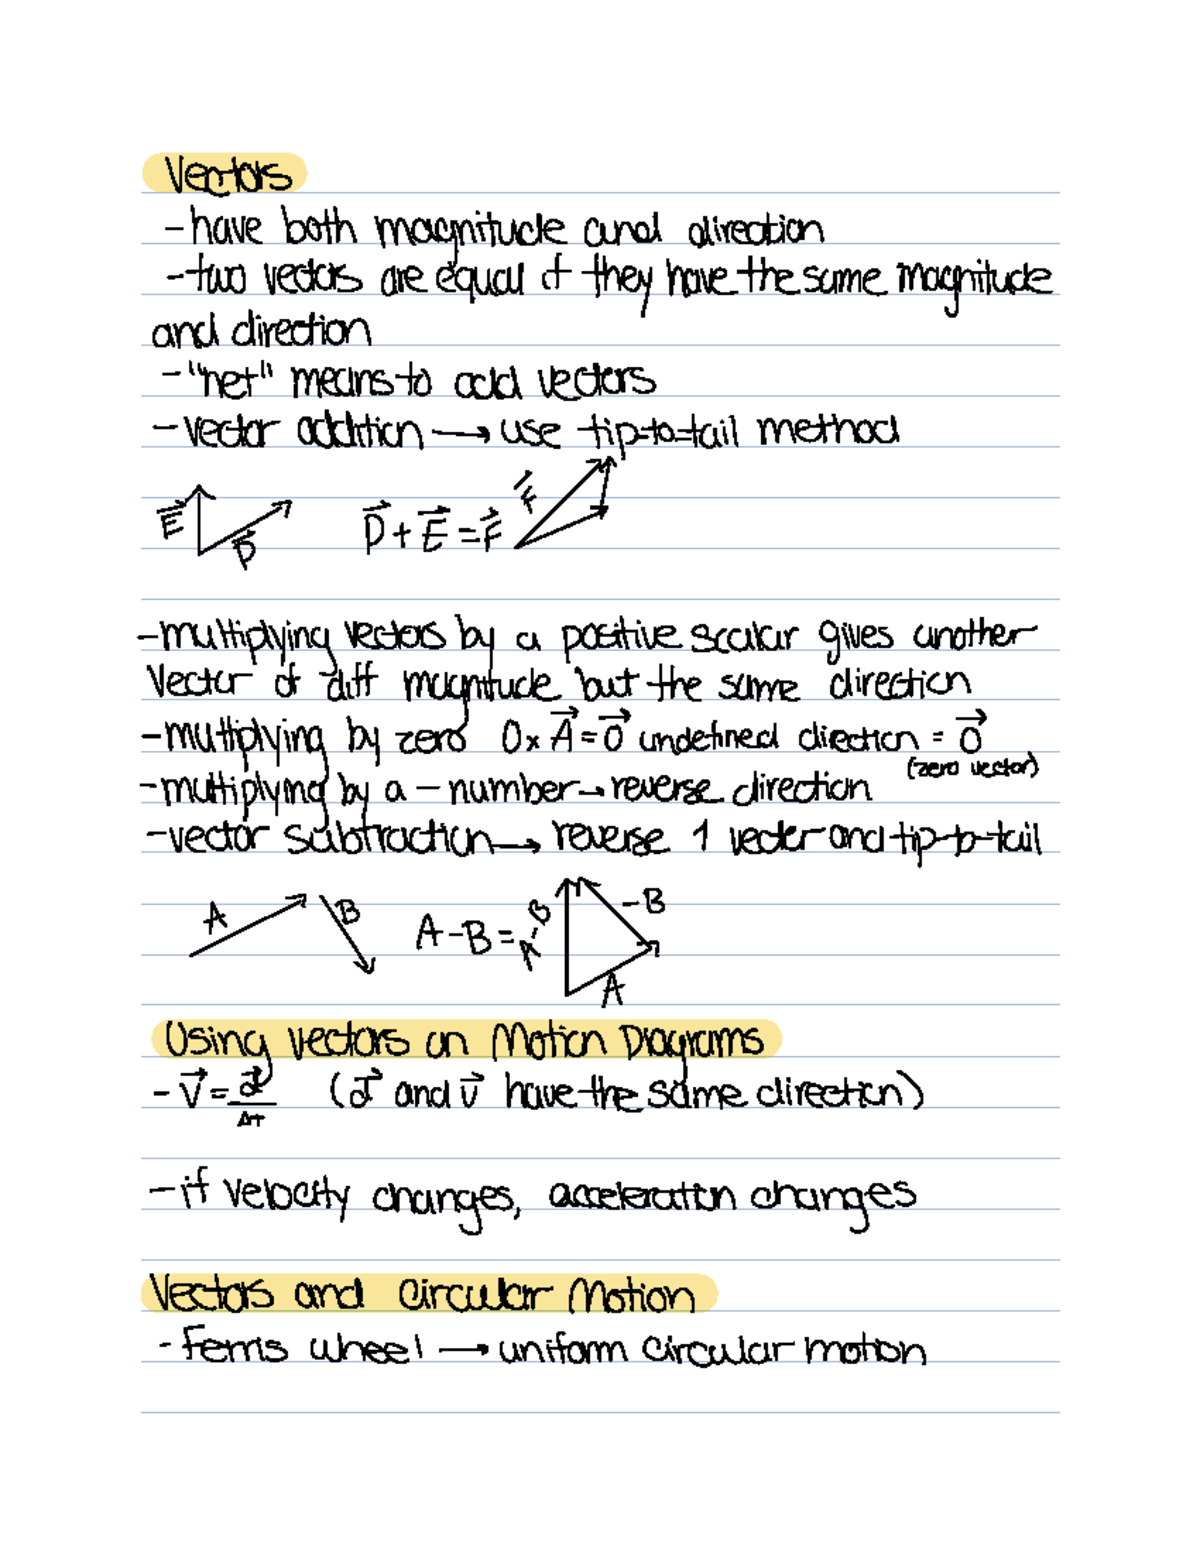 Vectors
- have both magnitude and direction
- two vectors are equal if they have the same magnitude
and direction
- "net" means to add vectors
- vector addition → use tip-to-tail method
E⃗ D⃗ D⃗ + E⃗ = F⃗ F⃗
- multiplying vectors by a positive scalar gives another
vector of diff magnitude but the same direction
- multiplying by zero 0 x A⃗ = 0⃗ undefined direction = 0⃗
(zero vector)
- multiplying by a - number → reverse direction
- vector subtraction → reverse 1 vector and tip-to-tail
A B A - B = A - B -B A
Using Vectors on Motion Diagrams
- v⃗ = d⃗/Δt (d⃗ and v⃗ have the same direction)
- if velocity changes, acceleration changes
Vectors and Circular Motion
- Ferris wheel → uniform circular motion